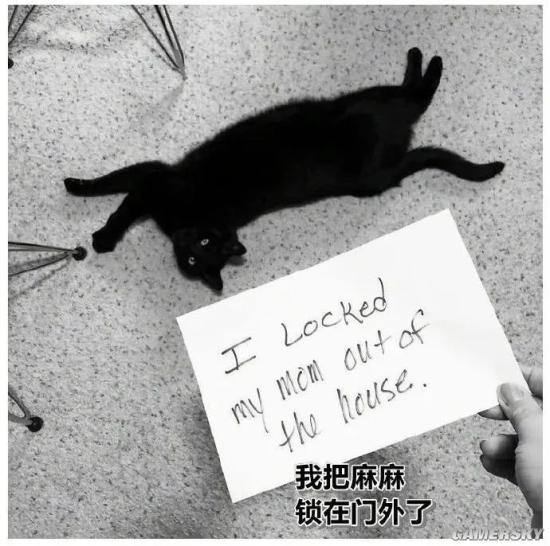 I Locked
my mom out of
the house.
我把麻麻
锁在门外了
GAMERSKY